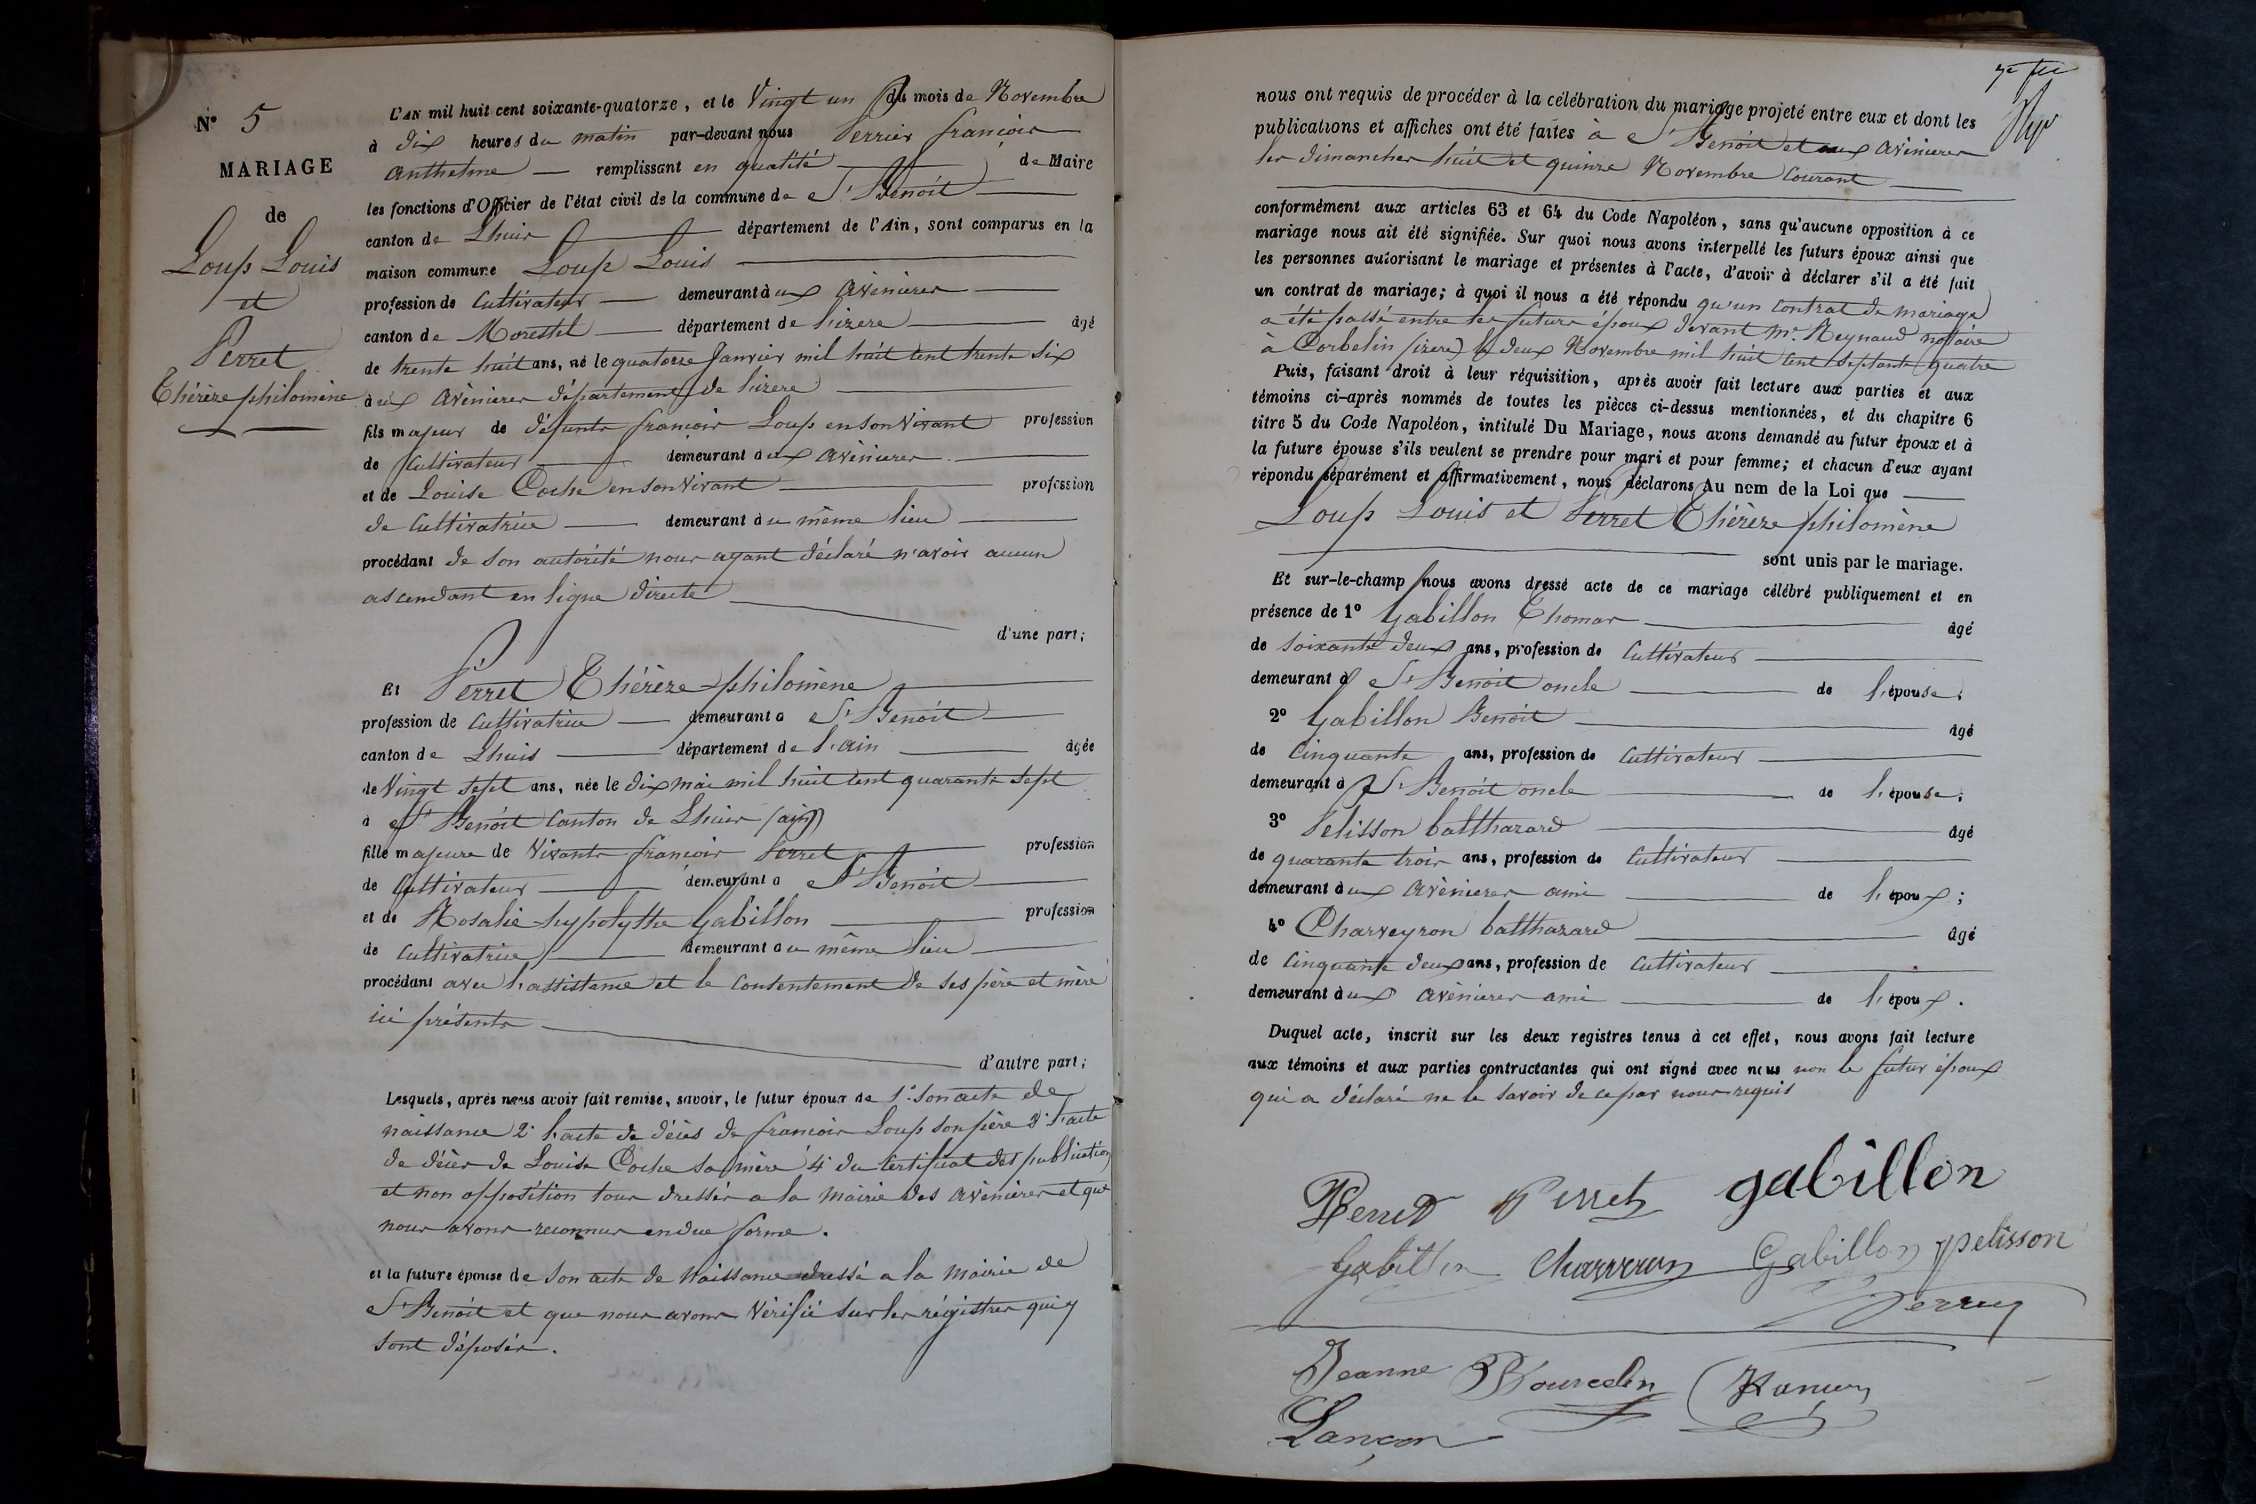 N° 5
MARIAGE
de
Loup Louis
et
Perret
Thérèze philomène
L'AN mil huit cent soixante-quatorze, et le Vingt un du mois de Novembre
à dix heures du matin par-devant nous Perrier françois
anthelme remplissant en qualité de Maire
les fonctions d'Officier de l'état civil de la commune de St Benoit
canton de Lhuis département de l'Ain, sont comparus en la
maison commune Loup Louis
profession de Cultivateur demeurant à ux avenieres
canton de Morestel département de lizere âgé
de trente huit ans, né le quatorze Janvier mil huit cent trente six
à ux avenieres département de lizere
fils majeur de défunts françois Loup en son vivant profession
de Cultivateur demeurant à ux avenieres
et de Louise Coche en son vivant profession
de Cultivatrice demeurant à u même lieu
procédant de son autorité nous ayant déclaré n'avoir aucun
ascendant en ligne directe
d'une part;
Et Perret Thérèze philomène
profession de Cultivatrice demeurant à St Benoit
canton de Lhuis département de l'ain âgée
de Vingt sept ans, née le dix mai mil huit cent quarante sept
à St Benoit Canton de Lhuis (ain)
fille majeure de vivants françois Perret profession
de Cultivateur demeurant à St Benoit
et de Rosalie hypolythe Gabillon profession
de Cultivatrice demeurant à u même lieu
procédant avec l'assistance et le consentement de ses père et mère
ici présents
d'autre part;
Lesquels, après nous avoir fait remise, savoir, le futur époux de 1° son acte de
naissance 2° l'acte de décès de françois Loup son père 3° l'acte
de décès de Louise Coche sa mère 4° du Certificat des publication
et non opposition tous dressés a la mairie des avenieres et que
nous avons reconnus en due forme.
et la future épouse de son acte de Naissance dressé a la Mairie de
St Benoit et que nous avons Vérifié sur les régistres qui y
sont déposés.
nous ont requis de procéder à la célébration du mariage projeté entre eux et dont les
publications et affiches ont été faites à St Benoit et aux avenieres
les dimanches huit et quinze Novembre Courant
conformément aux articles 63 et 64 du Code Napoléon, sans qu'aucune opposition à ce
mariage nous ait été signifiée. Sur quoi nous avons interpellé les futurs époux ainsi que
les personnes autorisant le mariage et présentes à l'acte, d'avoir à déclarer s'il a été fait
un contrat de mariage; à quoi il nous a été répondu qu'un Contrat de mariage
a été passé entre les futurs époux devant Me Reynaud notaire
à Corbelin (izere) le deux Novembre mil huit cent septante quatre
Puis, faisant droit à leur réquisition, après avoir fait lecture aux parties et aux
témoins ci-après nommés de toutes les pièces ci-dessus mentionnées, et du chapitre 6
titre 5 du Code Napoléon, intitulé Du Mariage, nous avons demandé au futur époux et à
la future épouse s'ils veulent se prendre pour mari et pour femme; et chacun d'eux ayant
répondu séparément et affirmativement, nous déclarons Au nom de la Loi que
Loup Louis et Perret Thérèze philomène
sont unis par le mariage.
Et sur-le-champ nous avons dressé acte de ce mariage célébré publiquement et en
présence de 1° Gabillon Thomas âgé
de soixante deux ans, profession de Cultivateur
demeurant à St Benoit oncle de l'épouse;
2° Gabillon Benoit âgé
de Cinquante ans, profession de Cultivateur
demeurant à St Benoit oncle de l'épouse;
3° Pelisson balthazard âgé
de quarante trois ans, profession de Cultivateur
demeurant à ux avenieres ami de l'époux;
4° Charveyron balthazard âgé
de Cinquante deux ans, profession de Cultivateur
demeurant à ux avenieres ami de l'époux.
Duquel acte, inscrit sur les deux registres tenus à cet effet, nous avons fait lecture
aux témoins et aux parties contractantes qui ont signé avec nous non le futur époux
qui a déclaré ne le savoir de ce par nous requis
Perret Perret gabillon
Gabillon Charveron Gabillon pelisson
Jeanne Bourcelin
Lançon